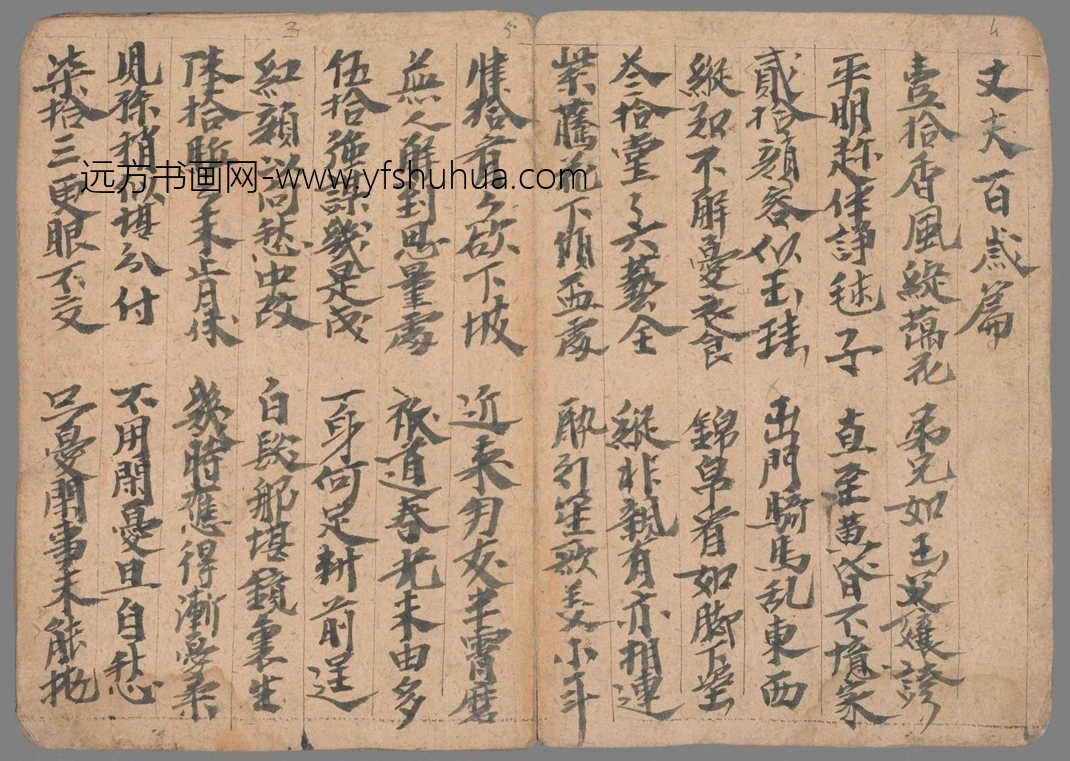 3
5
4
丈夫百歲篇
壹拾香風綻藕花 弟兄如玉父孃誇
平明趂伴諍毬子 直至黄昏不憶家
貳拾顔容似玉珪 出門騎馬乱東西
縱知不解憂衣食 錦帛看如脚下埿
叁拾堂々六藝全 縱非親有亦相連
紫藤花下傾盃處 酔引笙歌美少年
肆拾看々欲下坡 近來男女半霄磨
無人解到思量處 衹道春光未由多
伍拾強謀幾是成 一身何足料前逞
紅顔尚愁中改 白髮那堪鏡裏生
陸拾驅々未肯休 幾時應得漸憂柔
兒孫稍似堪分付 不用閑憂旦自愁
柒拾三更眼不交 只憂閑事未能抛
远方书画网-www.yfshuhua.com